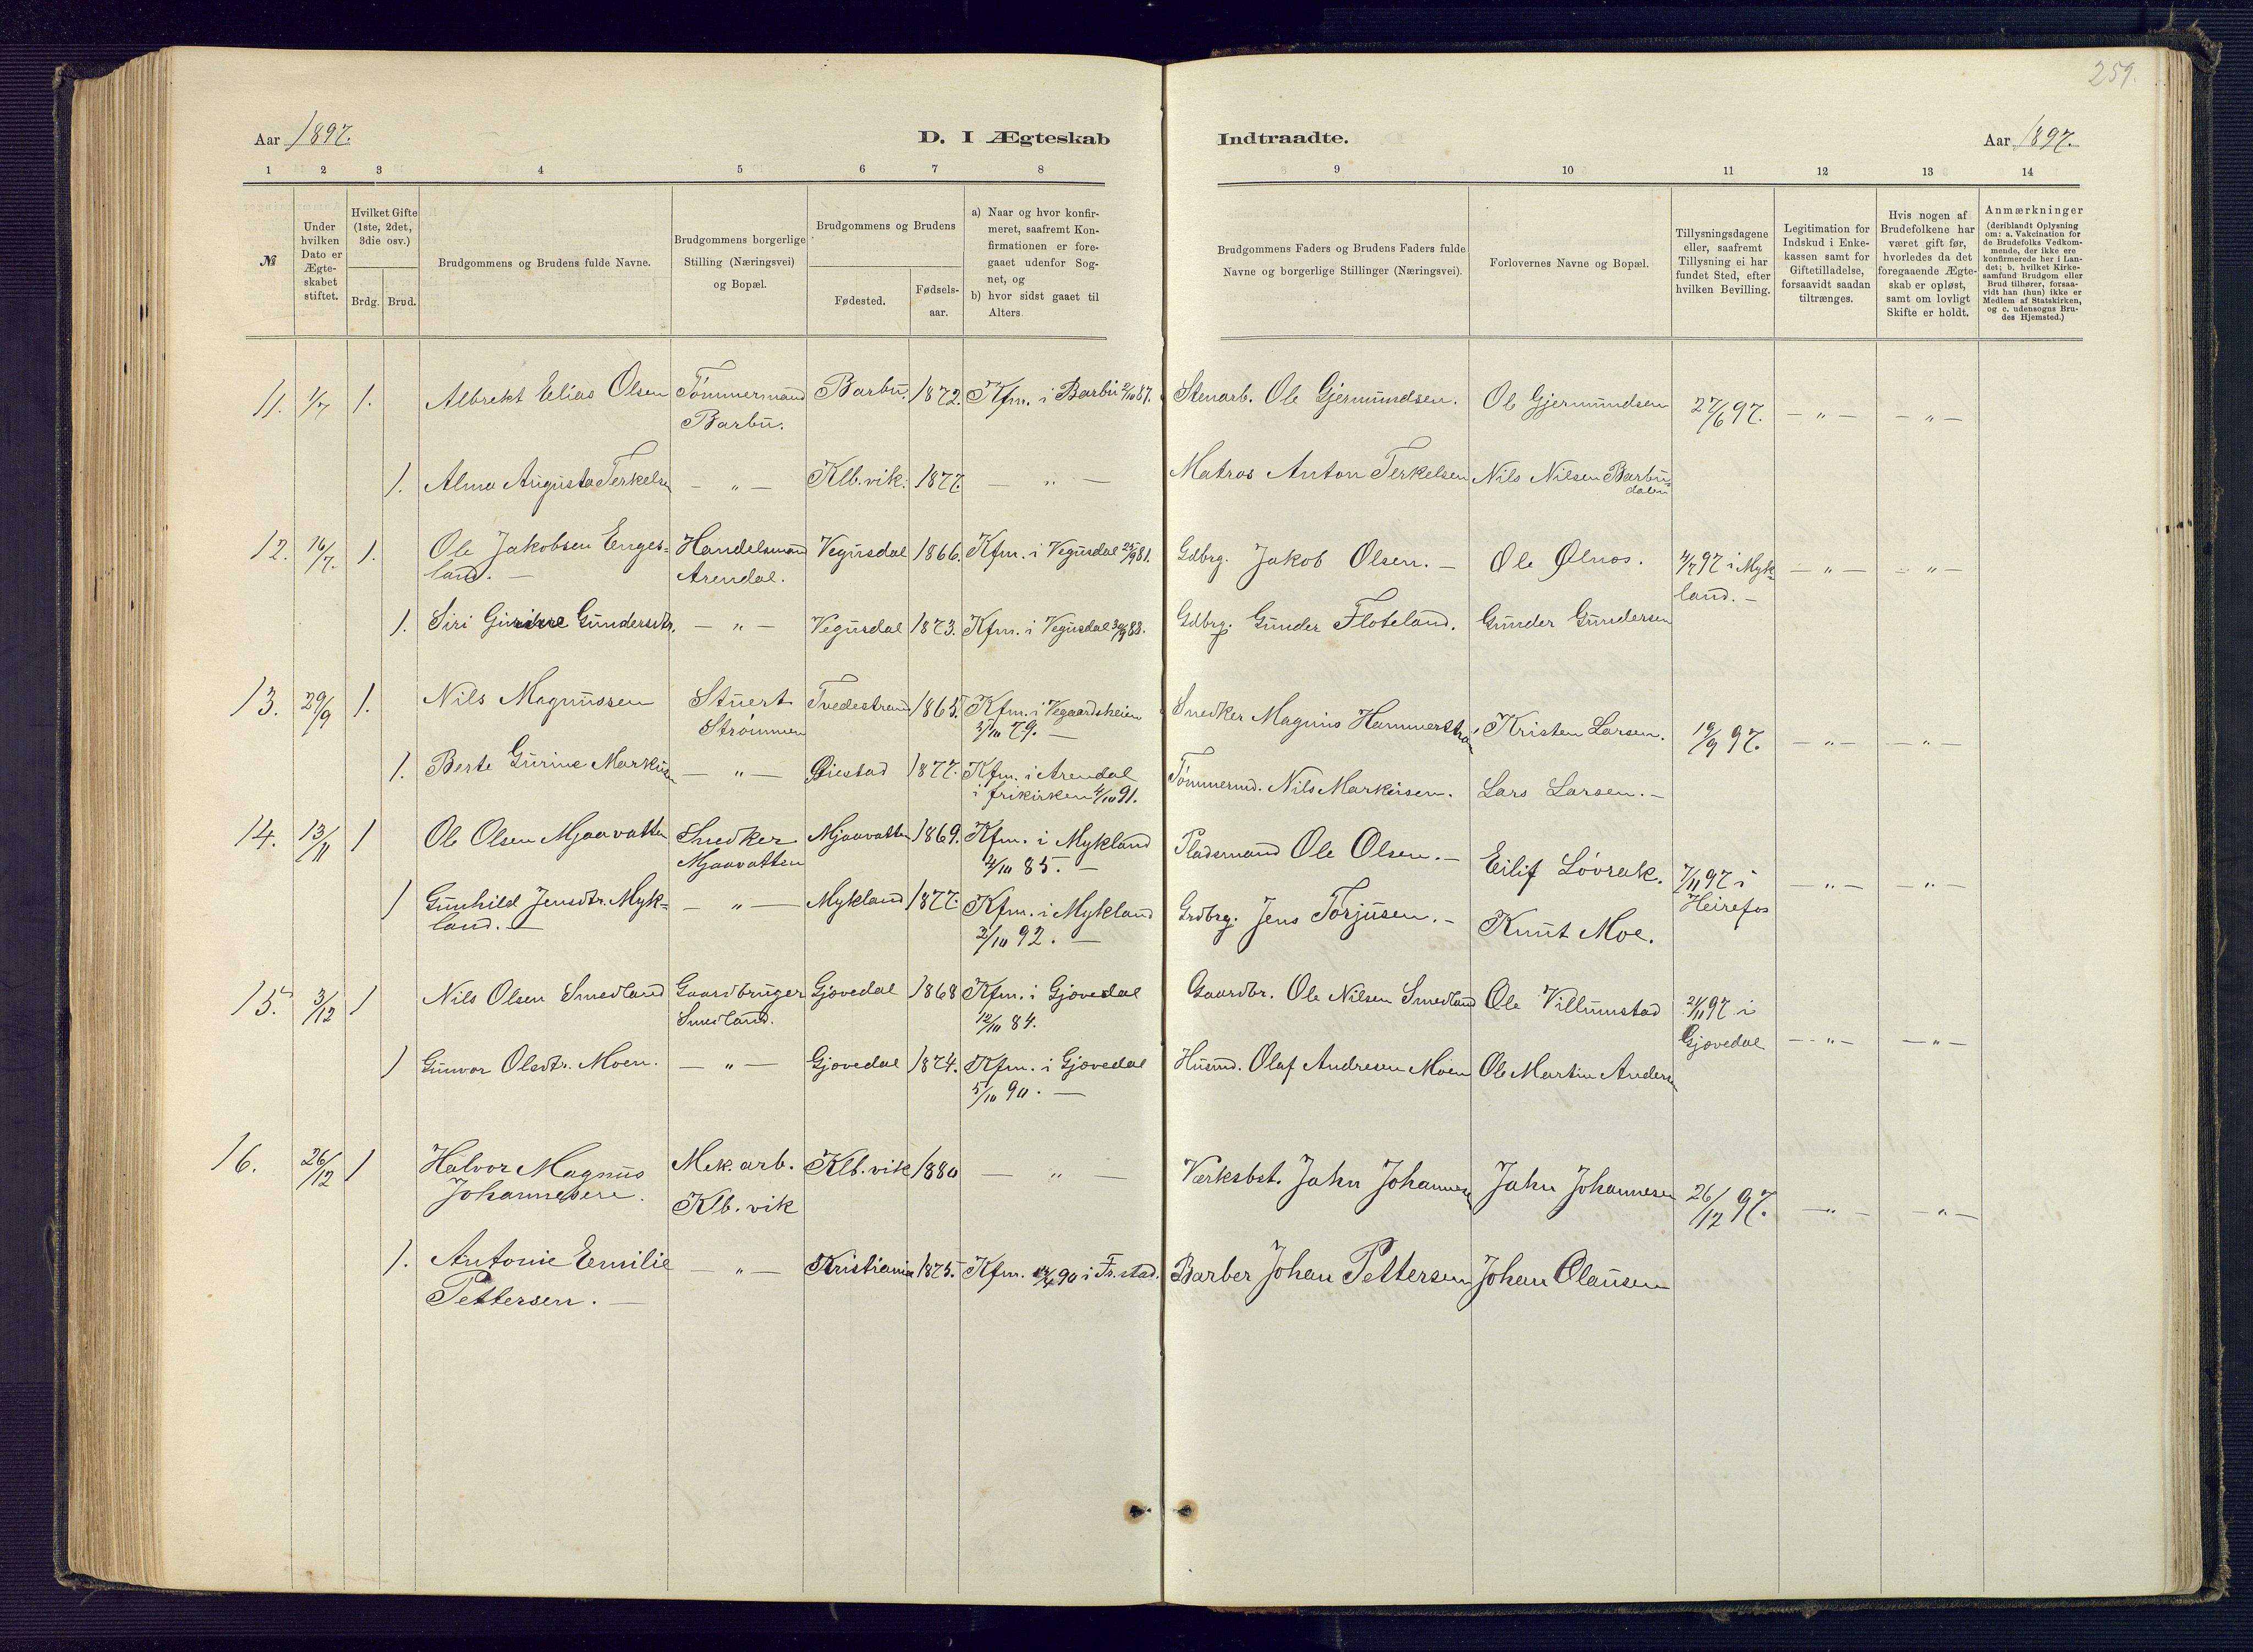 259.
Aar 1897.
D. I Ægteskab
Indtraadte.
Aar 1897.
1 2 3 4 5 6 7 8 9 10 11 12 13 14
№
Under hvilken Dato er Ægte-skabet stiftet.
Hvilket Gifte (1ste, 2det, 3die osv.)
Brdg. Brud.
Brudgommens og Brudens fulde Navne.
Brudgommens borgerlige Stilling (Næringsvei) og Bopæl.
Brudgommens og Brudens
Fødested.
Fødsels-aar.
a) Naar og hvor konfir-meret, saafremt Kon-firmationen er fore-gaaet udenfor Sog-net, og
b) hvor sidst gaaet til Alters.
Brudgommens Faders og Brudens Faders fulde Navne og borgerlige Stillinger (Næringsvei).
Forlovernes Navne og Bopæl.
Tillysningsdagene eller, saafremt Tillysning ei har fundet Sted, efter hvilken Bevilling.
Legitimation for Indskud i Enke-kassen samt for Giftetilladelse, forsaavidt saadan tiltrænges.
Hvis nogen af Brudefolkene har været gift før, hvorledes da det foregaaende Ægte-skab er opløst, samt om lovligt Skifte er holdt.
Anmærkninger (deriblandt Oplysning om: a. Vakcination for de Brudefolks Vedkom-mende, der ikke ere konfirmerede her i Lan-det; b. hvilket Kirke-samfund Brudgom eller Brud tilhører, forsaa-vidt han (hun) ikke er Medlem af Statskirken, og c. udensogns Bru-des Hjemsted.)
11. 1/7 1. Albrekt Elias Olsen Tømmermand Barbu. Barbu. 1872. Kfm. i Barbu 2/10 87. Stenarb. Ole Gjermundsen. Ole Gjermundsen 27/6 97. — „ — — „ —
1. Alma Augusta Terkelsen — „ — Klb.vik. 1877. — „ — Matros Anton Terkelsen Nils Nilsen Barbu-dalen
12. 16/7. 1. Ole Jakobsen Enges-land. — Handelsmand Arendal. Vegusdal 1866. Kfm. i Vegusdal 25/9 81. Gdbrg. Jakob Olsen. — Ole Ølnos. 4/7 97 i Myk-land. — — „ — — „ —
1. Siri Gurine Gundersdtr. — „ — Vegusdal 1873. Kfm. i Vegusdal 30/9 88. Gdbrg. Gunder Floteland. Gunder Gundersen
13. 29/9 1. Nils Magnussen Stuert Strømmen Tvedestrand 1865. Kfm. i Vegaardsheien 5/10 79. — Snedker Magnus Hammerstrøm Kristen Larsen. 19/9 97. — „ — — „ —
1. Berte Gurine Markusen — „ — Øiestad 1877. Kfm. i Arendal i frikirken 4/10 91. Tømmermd. Nils Markusen. Lars Larsen. —
14. 13/11 1 Ole Olsen Mjaavatten Snedker Mjaavatten Mjaavatten 1869. Kfm. i Mykland 4/10 85. — Pladsmand Ole Olsen. — Eilif Løvrak. 7/11 97 i Heirefos — „ — — „ —
1 Gunhild Jensdtr. Myk-land. — — „ — Mykland 1877. Kfm. i Mykland 2/10 92. — Grdbrg. Jens Torjusen. — Knut Moe.
15. 3/12 1 Nils Olsen Smedland Gaardbruger Smedland. Gjøvedal 1868 Kfm. i Gjøvedal 12/10 84. Gaardbr. Ole Nilsen Smedland Ole Villumstad 21/11 97 i Gjøvedal — „ — — „ —
1 Gunvor Olsdtr. Moen. — „ — Gjøvedal 1874. Kfm. i Gjøvedal 5/10 90. — Husmd. Olaf Andresen Moen Ole Martin Andersen
16. 26/12 1 Halvor Magnus Johannesen. Mek. arb. Klb. vik Klb. vik 1880 — „ — Værksbst. John Johannesen John Johannesen 26/12 97. — „ — — „ —
1. Antonie Emilie Pettersen. — — „ — Kristiania 1875. Kfm. 90 i Fr.stad. Barber Johan Pettersen Johan Clausen